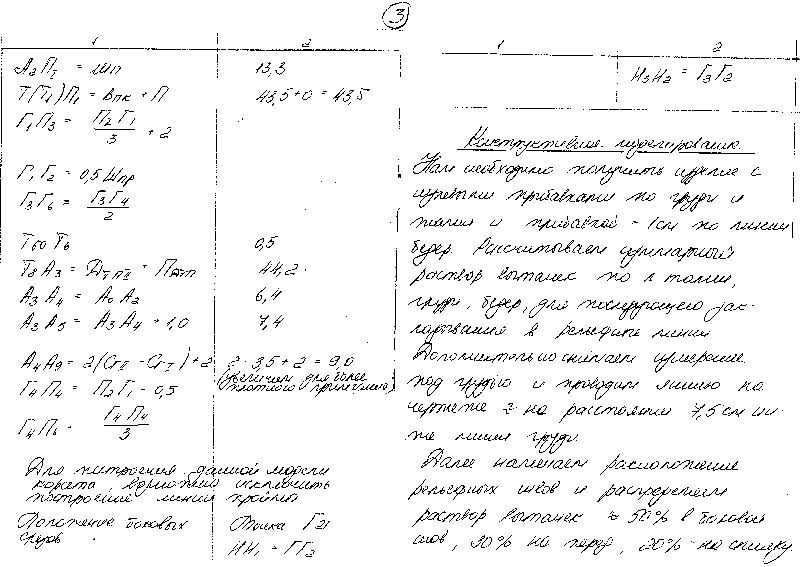 3
1 2
А₂П₂ = Шп 13,3
Т(Т₁)П₁ = Впк + П 43,5+0 = 43,5
Г₁П₃ = П₂Г₁/3 + 2
Г₁Г₂ = 0,5 Шпр
Г₃Г₆ = Г₃Г₄/2
Т₆₀Т₆ 0,5
44,2
А₃А₄ = А₀А₂ 6,4
А₃А₅ = А₃А₄ + 1,0 7,4
А₄А₉ = 2(СгII - СгI) + 2 2·3,5+2 = 9,0
(увеличен для более
плотного прилегания)
Г₄П₄ = П₂Г₁ - 0,5
Г₄П₆ = Г₄П₄/3
Для построения данной модели
корсета, возможно исключить
построение линии проймы
Положение боковых Точка Г₂₁
срезов НН₁ = ГГ₂
1 2
Н₃Н₂ = Г₃Г₂
Конструктивное моделирование.
Нам необходимо получить изделие с
нулевыми прибавками по груди и
талии и прибавкой = 1см по линии
бедер. Рассчитываем суммарный
раствор вытачек по л талии,
груди, бедер, для последующего зак-
ладывания в рельефные линии
Дополнительно снимаем измерение
под грудью и проводим линию на
чертеже 2 на расстоянии 7,5 см ни-
же линии груди.
Далее намечаем расположение
рельефных швов и распределяем
раствор вытачек ≈ 50% в боковой
шов, 30% на перед, 20% на спинку.